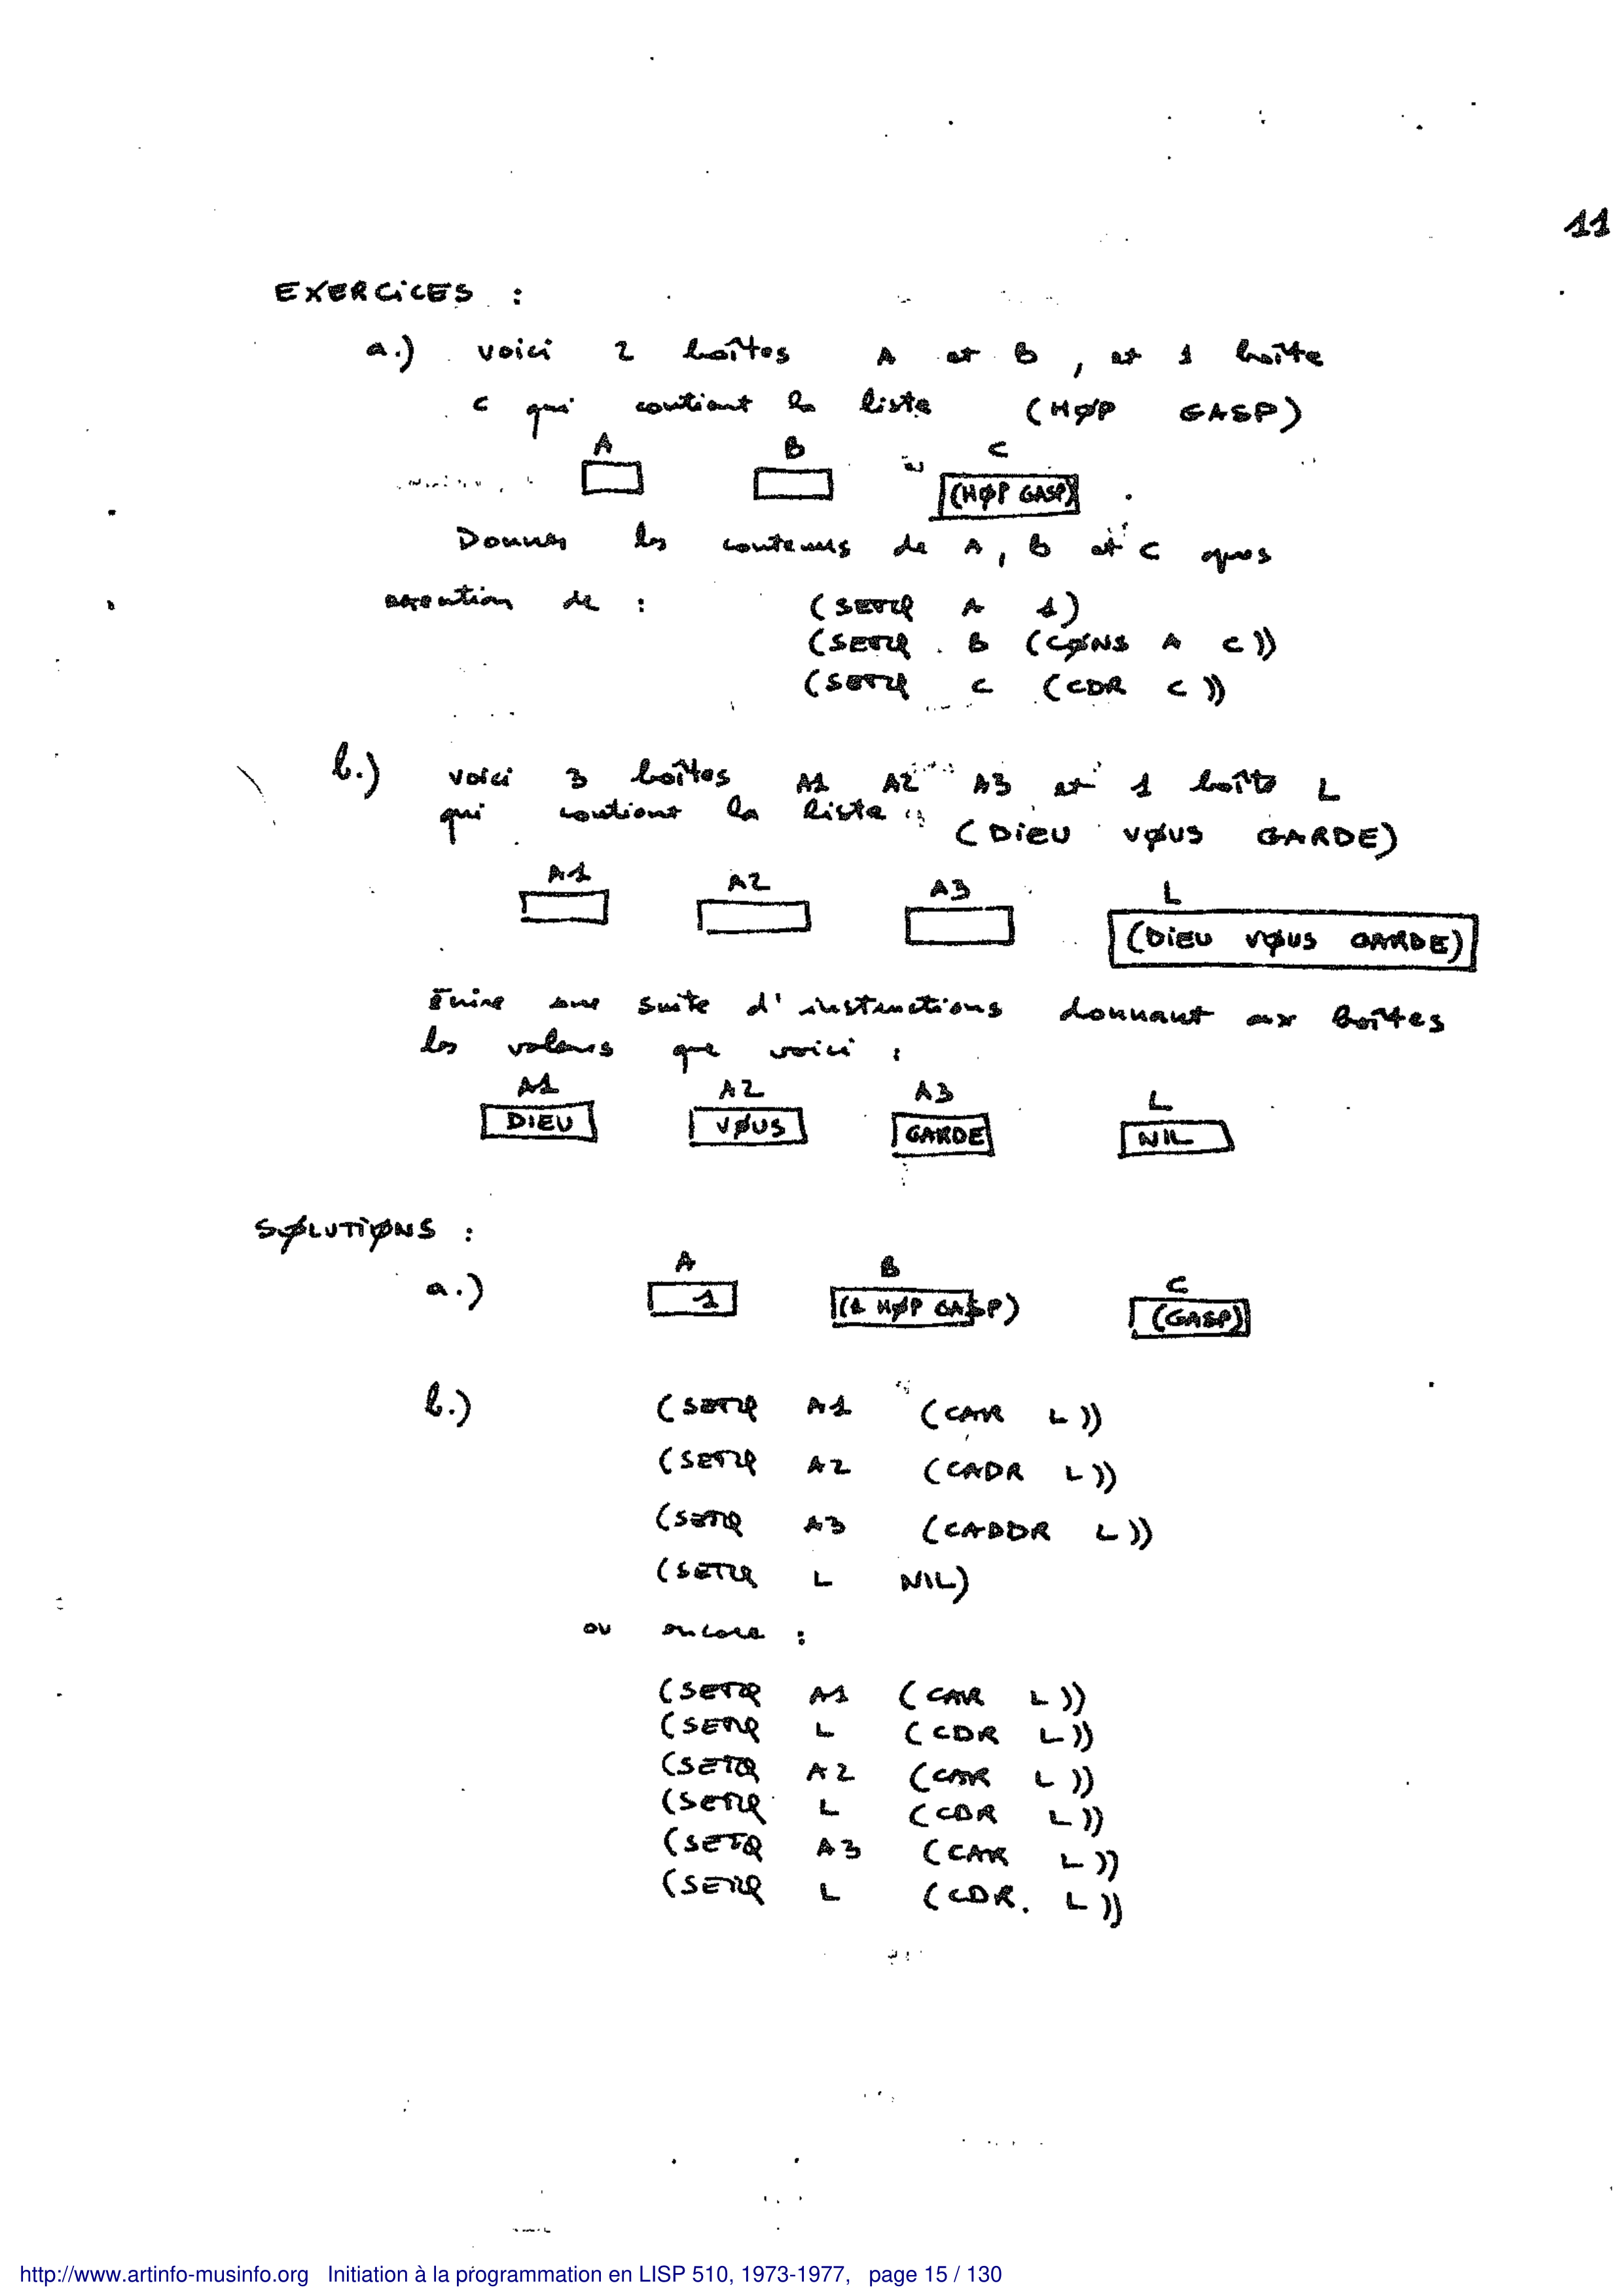 11
EXERCiCES :
a.) voici 2 boîtes A et B , et 1 boîte
C qui contient la liste (HØP GASP)
A B C
(HØP GASP)
Donner les contenus de A, B et C après
execution de : (SETQ A 1)
(SETQ B (CØNS A C))
(SETQ C (CDR C))
b.) voici 3 boîtes A1 A2 A3 et 1 boîte L
qui contient la liste (DiEU VØUS GARDE)
A1 A2 A3 L
(DiEU VØUS GARDE)
Ecrire une suite d'instructions donnant aux boîtes
les valeurs que voici :
A1 A2 A3 L
DIEU VØUS GARDE NIL
SØLUTiØNS :
A B C
a.) 1 (1 HØP GASP) (GASP)
b.) (SETQ A1 (CAR L))
(SETQ A2 (CADR L))
(SETQ A3 (CADDR L))
(SETQ L NIL)
ou encore :
(SETQ A1 (CAR L))
(SETQ L (CDR L))
(SETQ A2 (CAR L))
(SETQ L (CDR L))
(SETQ A3 (CAR L))
(SETQ L (CDR. L))
http://www.artinfo-musinfo.org Initiation à la programmation en LISP 510, 1973-1977, page 15 / 130